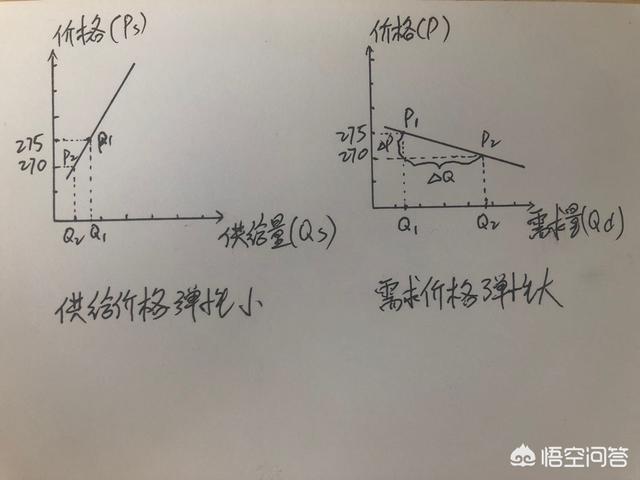 价格(Ps)
275
270
P2
Q1
Q2 Q1
供给量(Qs)
供给价格弹性小
价格(P)
P1
P2
275
270
ΔP
ΔQ
Q1
Q2
需求量(Qd)
需求价格弹性大
悟空问答